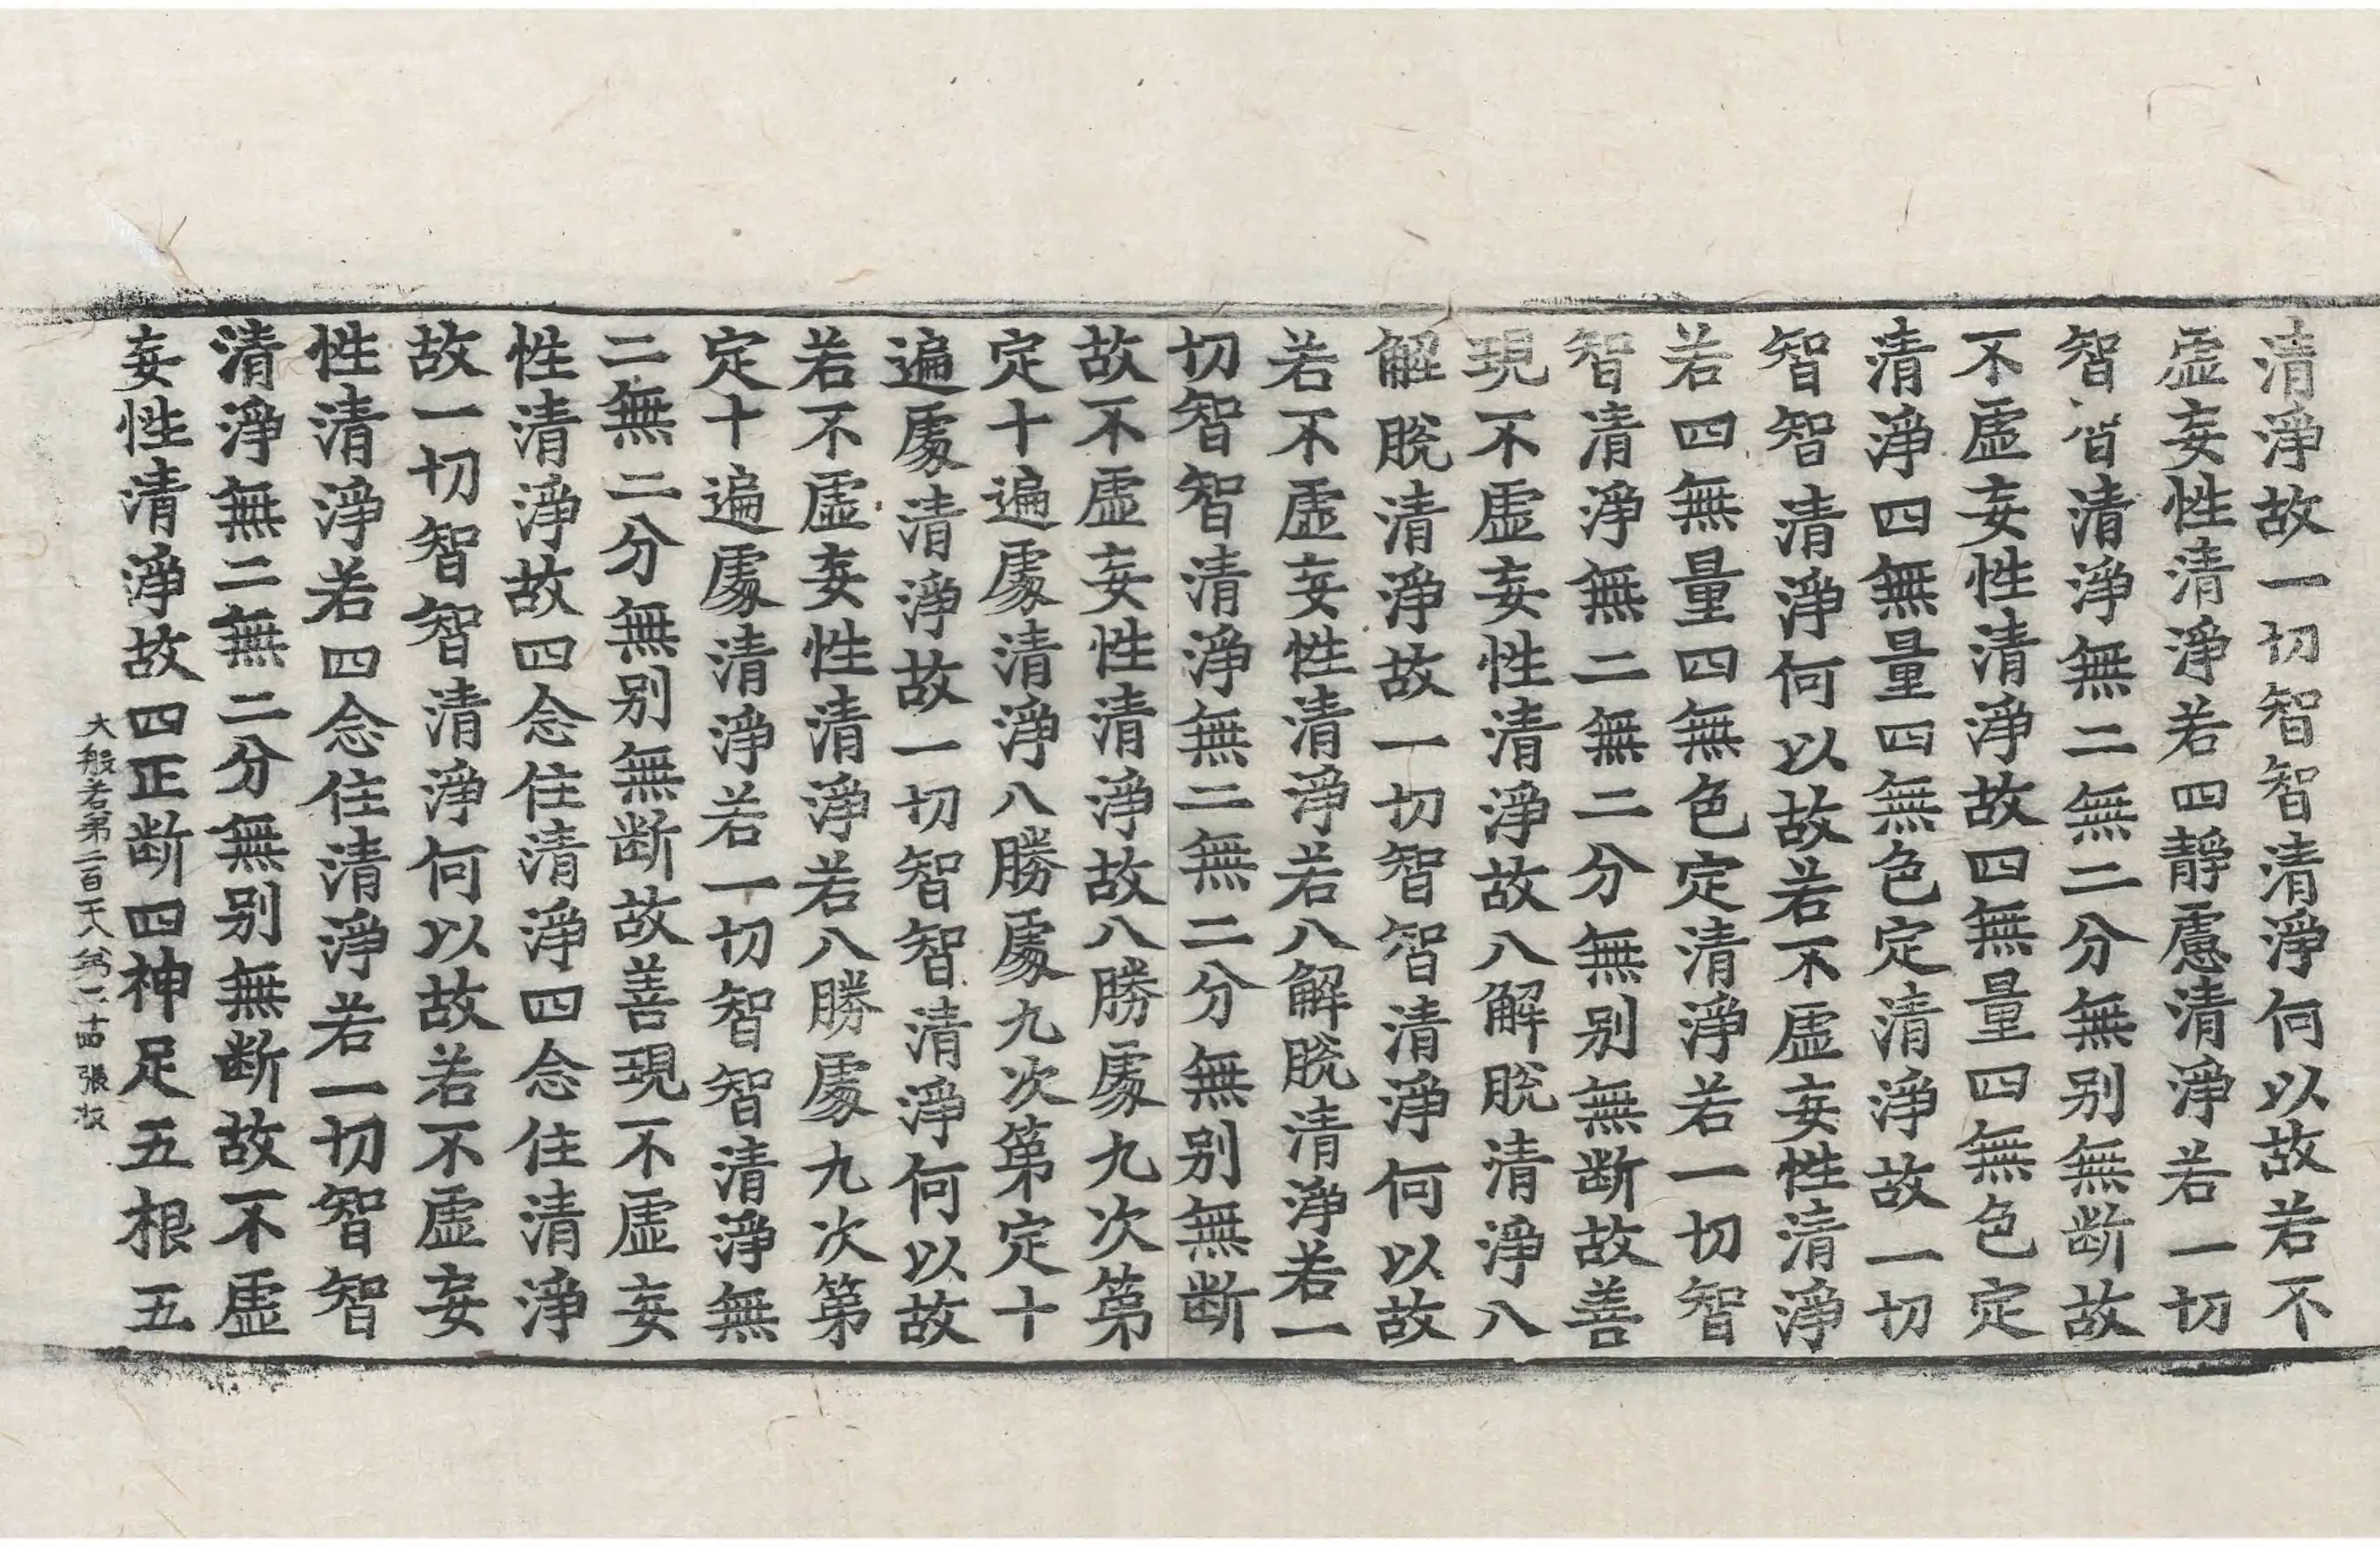 清淨故一切智智清淨何以故若不
虛妄性清淨若四靜慮清淨若一切
智智清淨無二無二分無別無斷故
不虛妄性清淨故四無量四無色定
清淨四無量四無色定清淨故一切
智智清淨何以故若不虛妄性清淨
若四無量四無色定清淨若一切智
智清淨無二無二分無別無斷故善
現不虛妄性清淨故八解脫清淨八
解脫清淨故一切智智清淨何以故
若不虛妄性清淨若八解脫清淨若一
切智智清淨無二無二分無別無斷
故不虛妄性清淨故八勝處九次第
定十遍處清淨八勝處九次第定十
遍處清淨故一切智智清淨何以故
若不虛妄性清淨若八勝處九次第
定十遍處清淨若一切智智清淨無
二無二分無別無斷故善現不虛妄
性清淨故四念住清淨四念住清淨
故一切智智清淨何以故若不虛妄
性清淨若四念住清淨若一切智智
清淨無二無二分無別無斷故不虛
妄性清淨故四正斷四神足五根五
大般若第二百 張